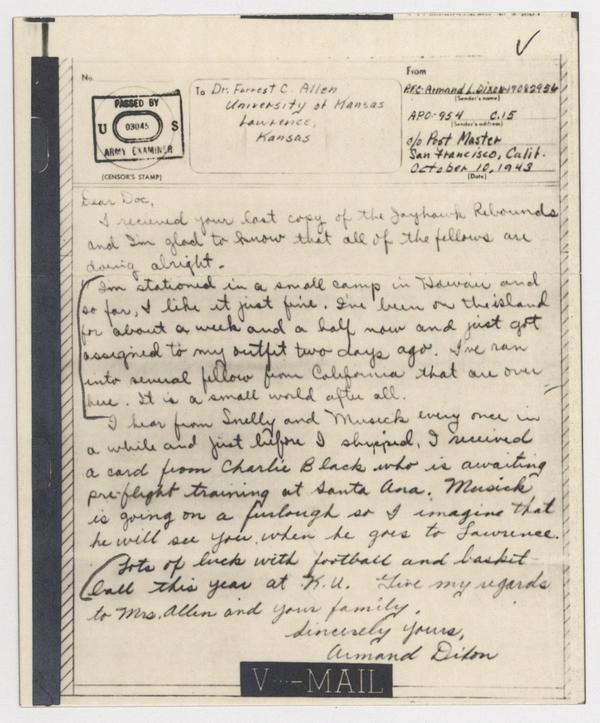 No.
PASSED BY
U 03045 S
ARMY EXAMINER
(CENSOR'S STAMP)
To Dr. Forrest C. Allen
University of Kansas
Lawrence,
Kansas
From
PFC. Armand L. Dixon 17082956
(Sender's name)
APO-954 C.15
(Sender's address)
c/o Post Master
San Francisco, Calif.
October 10, 1943
(Date)
Dear Doc,
I recieved your last copy of the Jayhawk Rebounds
and I'm glad to know that all of the fellows are
doing alright.
I'm stationed in a small camp in Hawaii and
so far, I like it just fine. I've been on the island
for about a week and a half now and just got
assigned to my outfit two days ago. I've ran
into several fellow from California that are over
here. It is a small world after all.
I hear from Snelly and Musick every once in
a while and just before I shipped, I received
a card from Charlie Black who is awaiting
pre-flight training at Santa Ana. Musick
is going on a furlough so I imagine that
he will see you when he goes to Lawrence.
Lots of luck with football and basket-
ball this year at K.U. Give my regards
to Mrs. Allen and your family.
Sincerely yours,
Armand Dixon
V···—MAIL